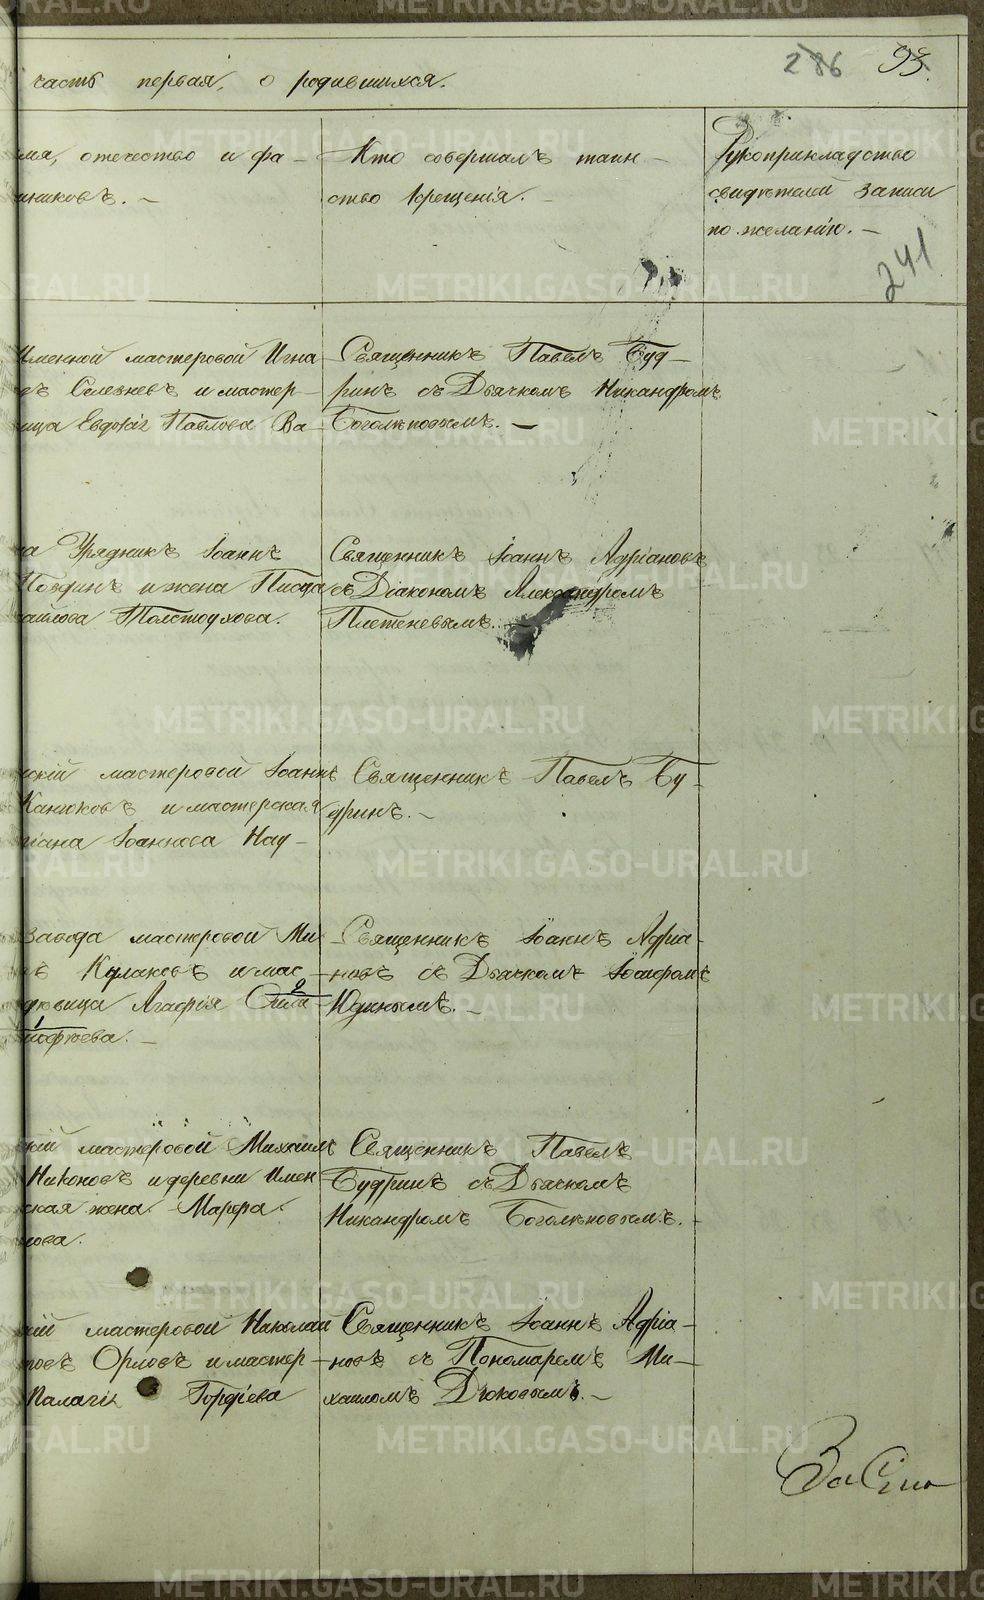 часть первая, о родившихся.
286 93.
мя, отечество и фа-
мниковъ. —
Кто совершалъ таин-
ство крещенія. —
Рукоприкладство
свидѣтелей записи
по желанію. —
241
Именной мастеровой Игна
ъ Селезневъ и мастер-
ица Евдокія Павлова Ва-
Священникъ Павелъ Буд-
ринъ съ Дьячкомъ Никандромъ
Боголѣповымъ. —
на Урядникъ Іоаннъ
Повдинъ и жена Писца
аилова Толстоухова.
Священникъ Іоаннъ Адріановъ
съ Діакономъ Александромъ
Плетеневымъ. —
скій мастеровой Іоаннъ
Канюковъ и мастерская
ріана Іоаннова Нау-
Священникъ Павелъ Бу-
дринъ. —
завода мастеровой Ми-
ъ Кулаковъ и мас-
довица Агафія
2
1
тофѣева. —
Священникъ Іоаннъ Адріа-
новъ съ Дьячкомъ Іосифомъ
Юдинымъ. —
кій мастеровой Михаилъ
Никоновъ и деревни Имен
ская жена Марфа
нова.
Священникъ Павелъ
Будринъ съ Дьячкомъ
Никандромъ Боголѣповымъ. —
кій мастеровой Николай
повъ Орловъ и мастер-
Палагія Гордѣева
Священникъ Іоаннъ Адріа-
новъ съ Пономаремъ Ми-
хаиломъ Дюковымъ. —
METRIKI.GASO-URAL.RU